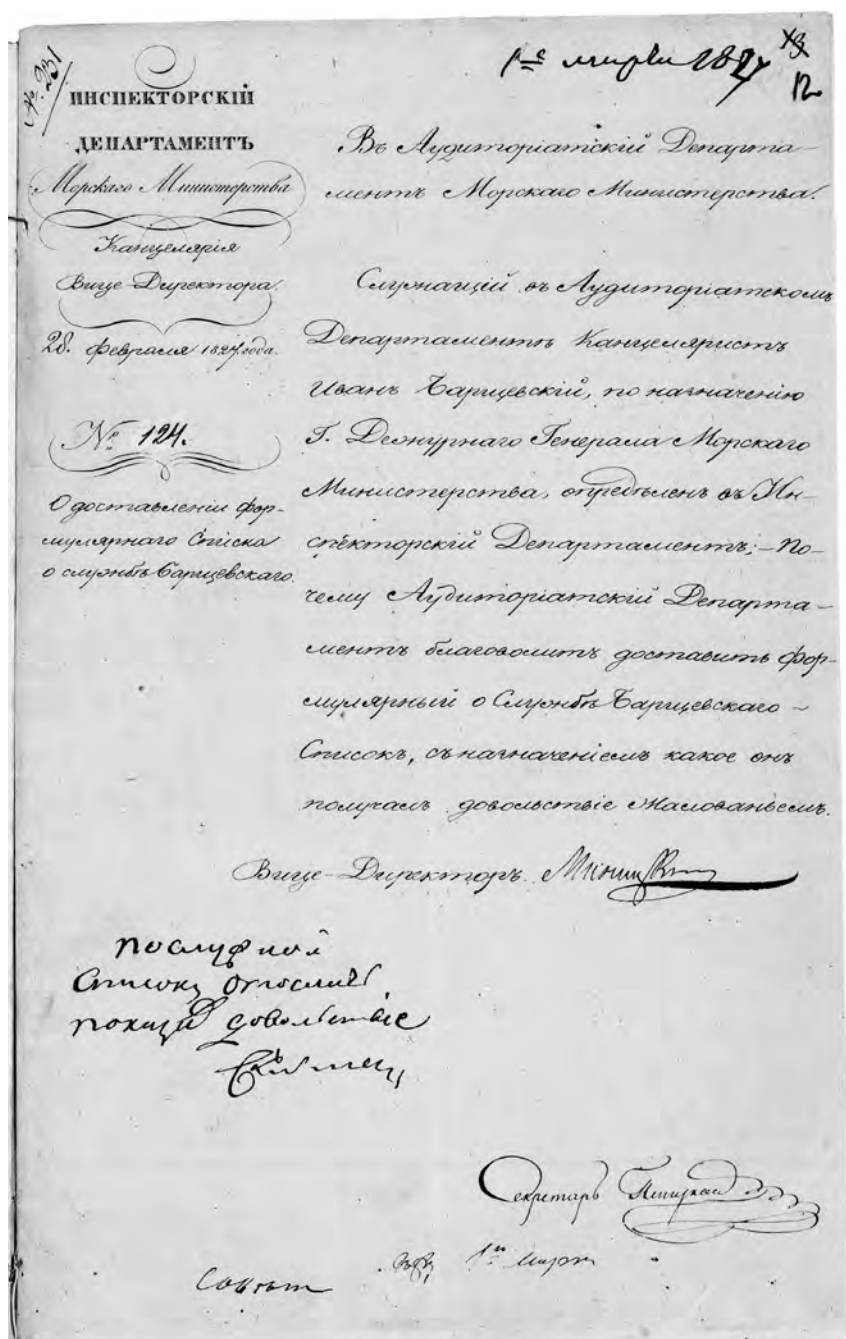 № 231
1е марта 1827
13
12
ИНСПЕКТОРСКІЙ
ДЕПАРТАМЕНТЪ
Морскаго Министерства
Канцелярія
Вице-Директора.
28. февраля 1827 года.
№ 124.
О доставленіи фор-
мулярнаго Списка
о службѣ Барщевскаго.
Въ Аудиторіатскій Департа-
ментъ Морскаго Министерства.
Служащій въ Аудиторіатскомъ
Департаментѣ Канцеляристъ
Иванъ Барщевскій, по назначенію
Г. Дежурнаго Генерала Морскаго
Министерства, опредѣленъ въ Ин-
спекторскій Департаментъ; – По-
чему Аудиторіатскій Департа-
ментъ благоволитъ доставить фор-
мулярный о Службѣ Барщевскаго –
Списокъ, съ назначеніемъ какое онъ
получалъ довольствіе жалованьемъ.
Вице-Директоръ
послужной
списокъ
довольствіе
Секретарь
1го марта